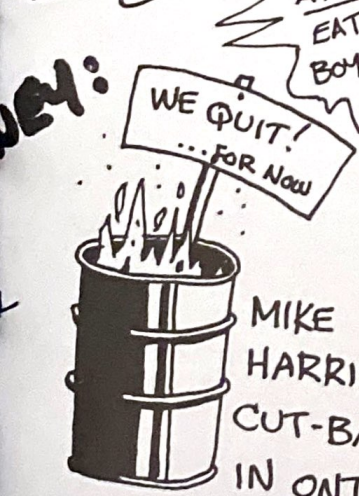 EAT
BOY
WE QUIT!
...FOR NOW
MIKE
HARRI
CUT-BA
IN ONT